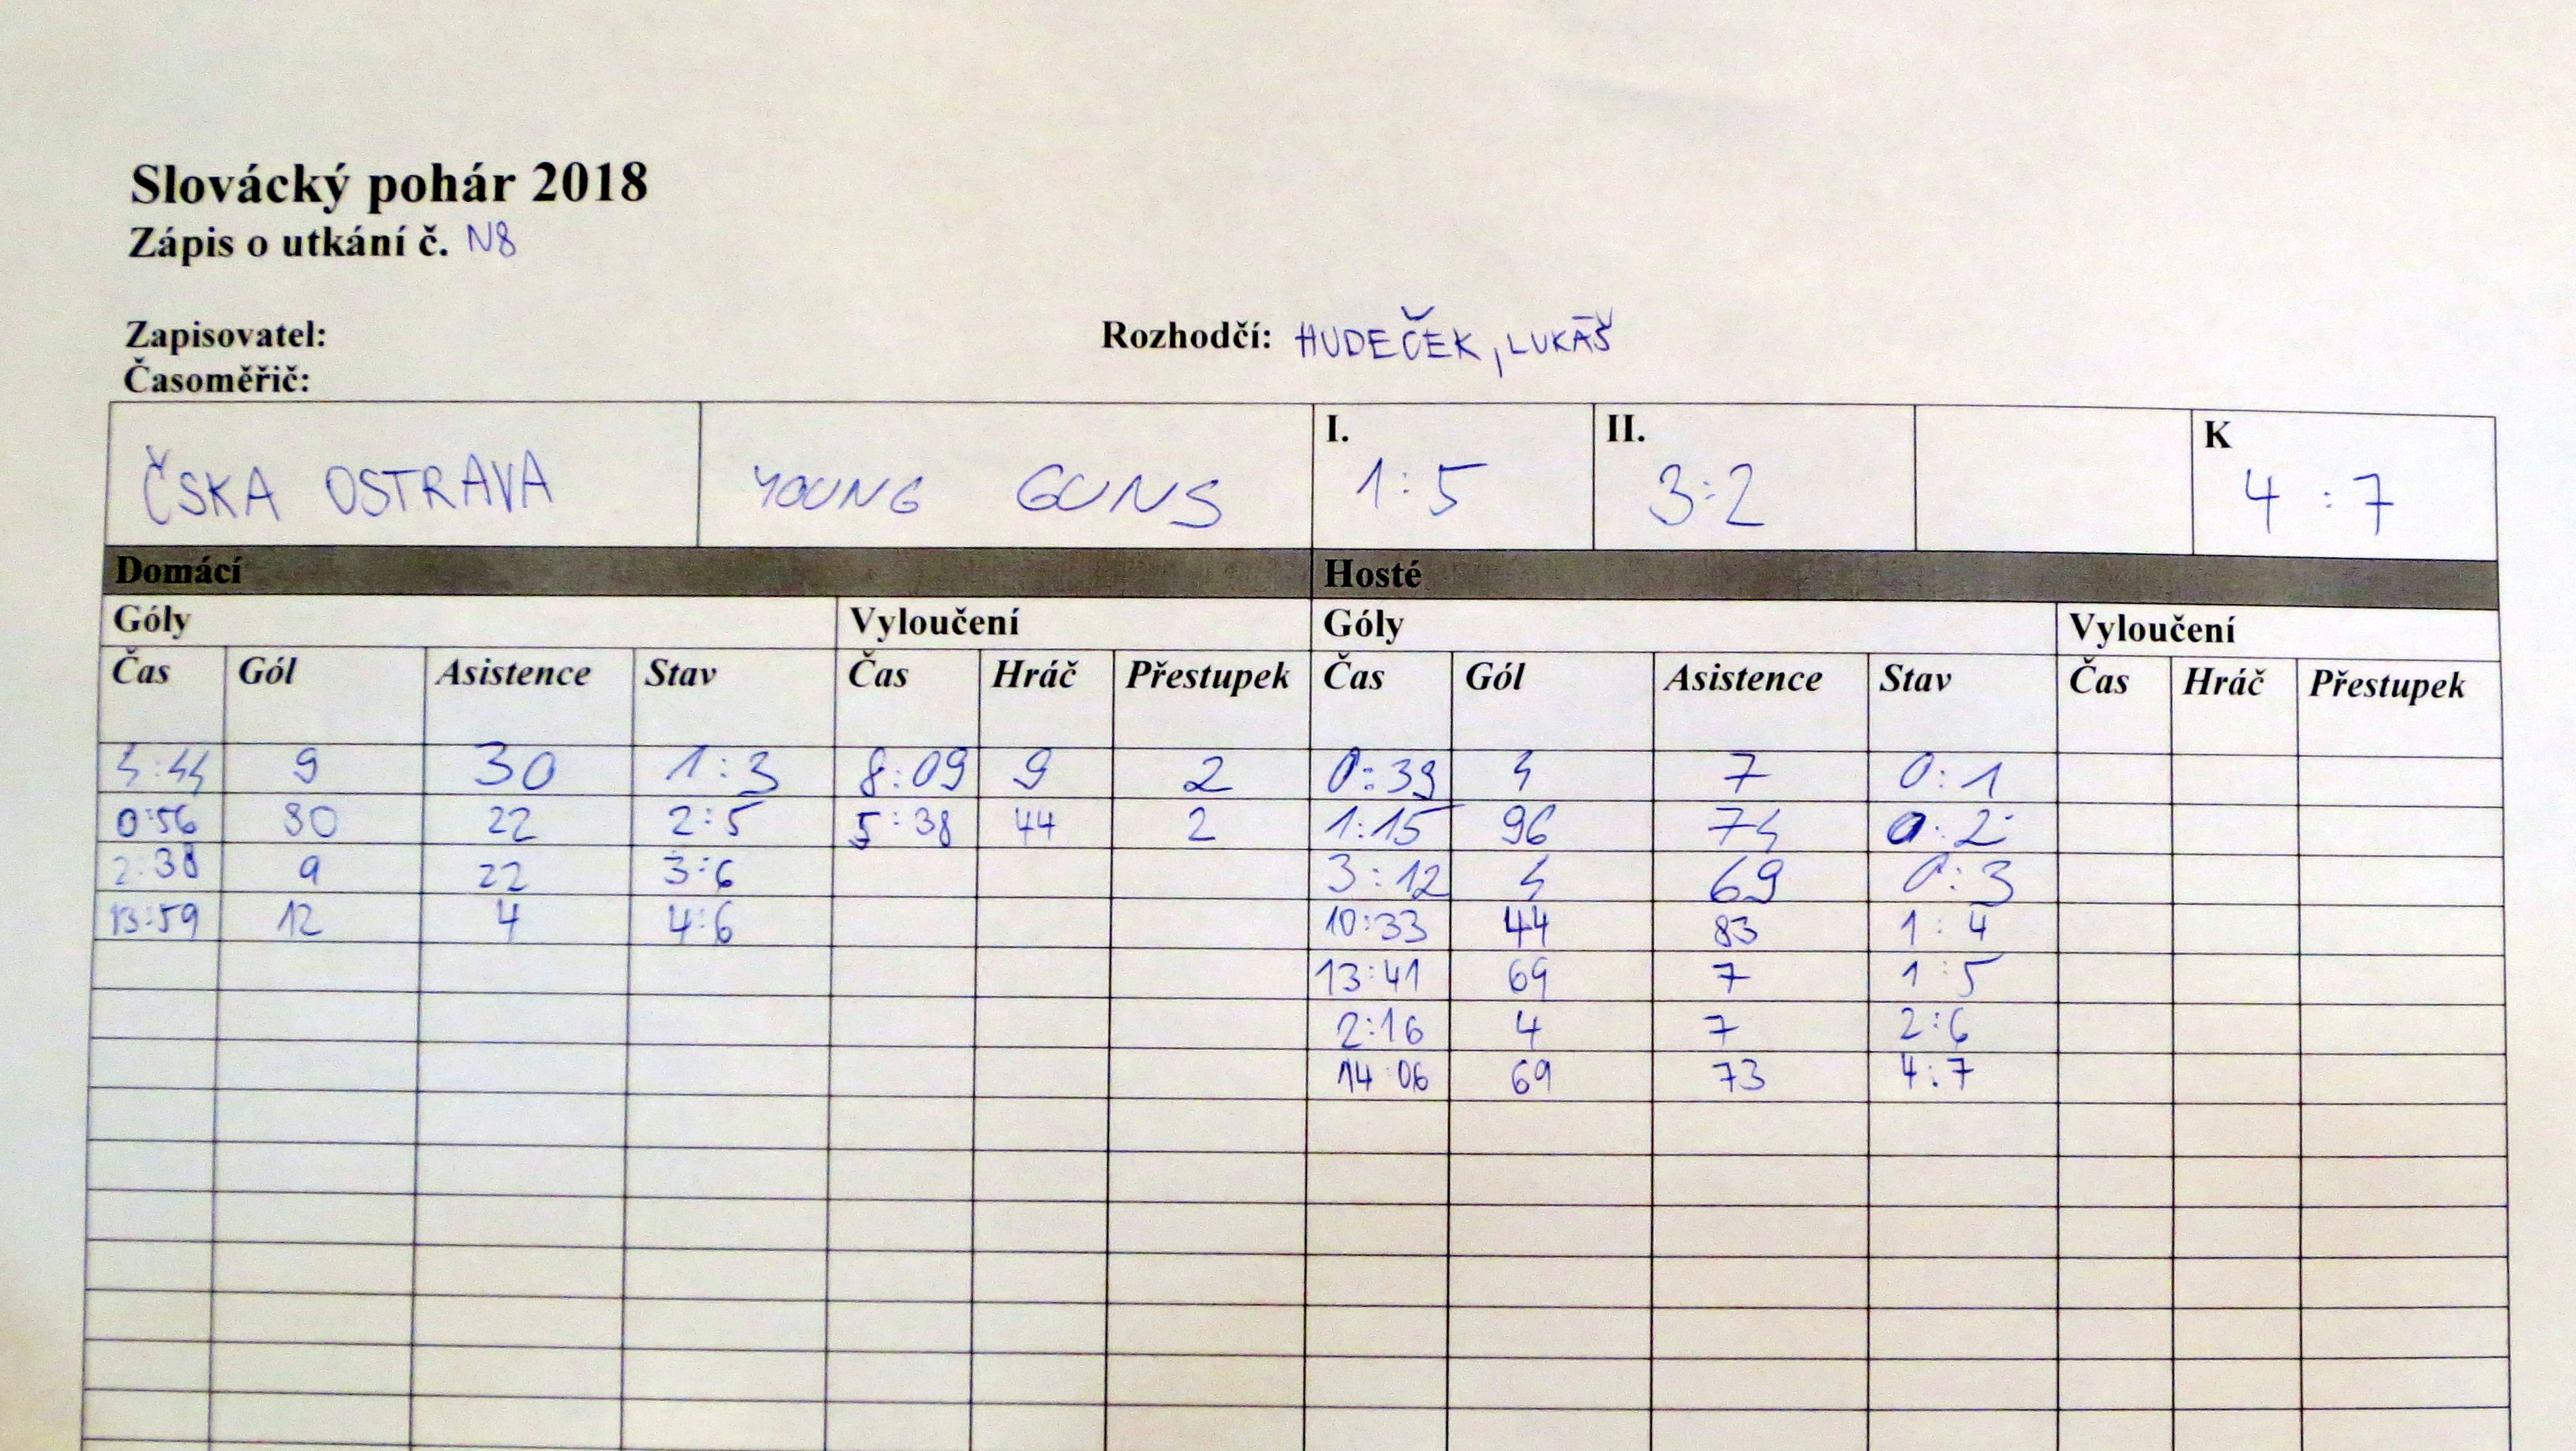 Slovácký pohár 2018
Zápis o utkání č. N8
Zapisovatel: Rozhodčí: HUDEČEK, LUKÁŠ
Časoměřič:
ČSKA OSTRAVA YOUNG GUNS I. 1:5 II. 3:2 K 4:7
Domácí Hosté
Góly Vyloučení Góly Vyloučení
Čas Gól Asistence Stav Čas Hráč Přestupek Čas Gól Asistence Stav Čas Hráč Přestupek
4:44 9 30 1:3 8:09 9 2 0:39 4 7 0:1
0:56 80 22 2:5 5:38 44 2 1:15 96 74 0:2
2:38 9 22 3:6 3:12 4 69 0:3
13:59 12 4 4:6 10:33 44 83 1:4
13:41 69 7 1:5
2:16 4 7 2:6
14:06 69 73 4:7